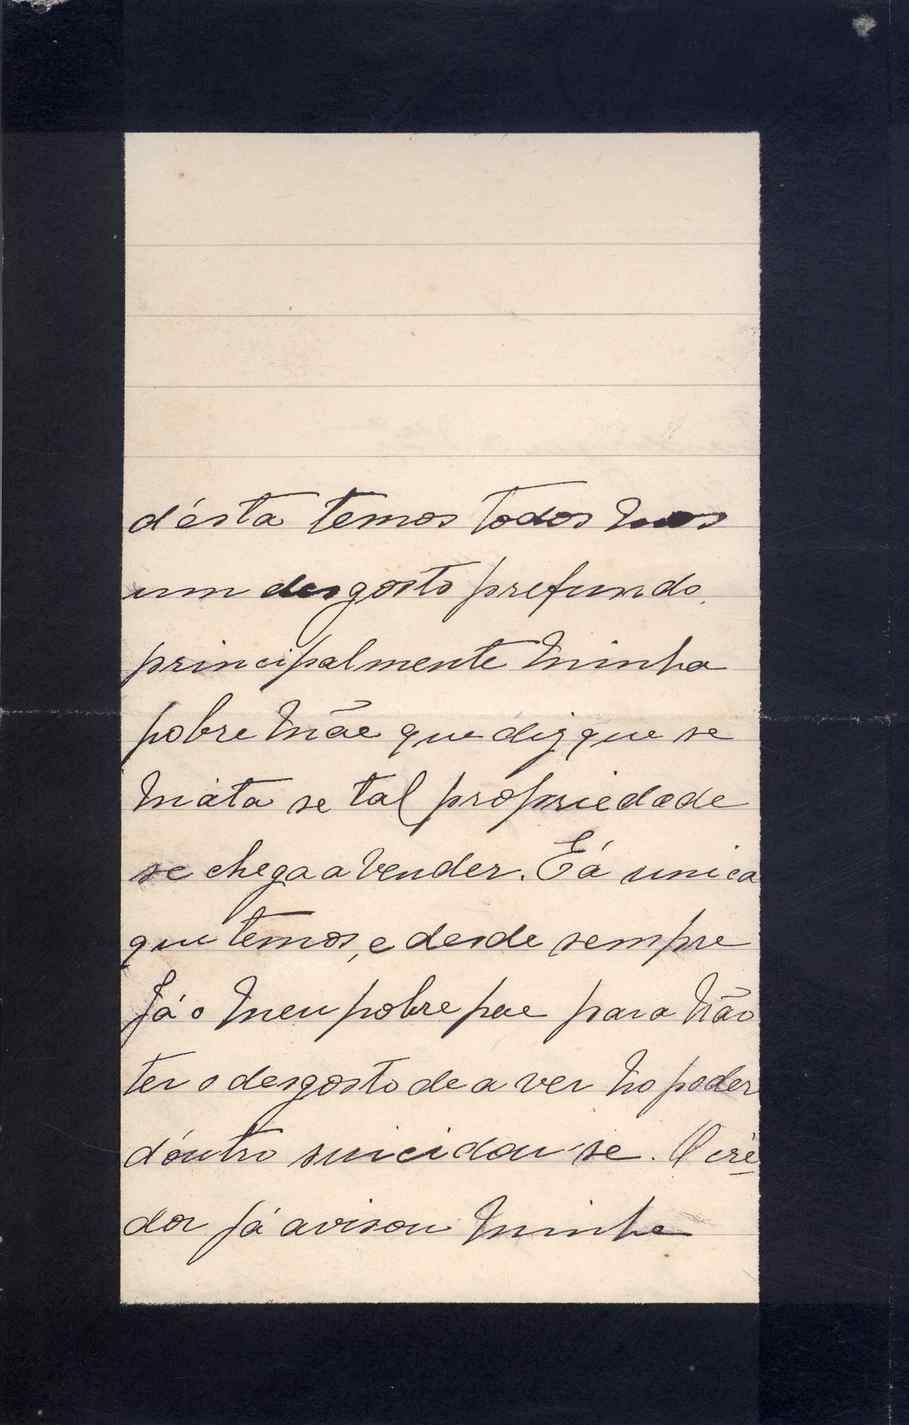 d'ésta temos todos nos
um desgosto prefundo,
principalmente minha
pobre Mãe que diz que se
máta se tal propriedade
se chega a vender. É á unica
que temos, e desde sempre
Já o meu pobre pae para não
ter o desgosto de a ver no poder
d'óutro suicidou-se. O cré=
dor já avisou minha